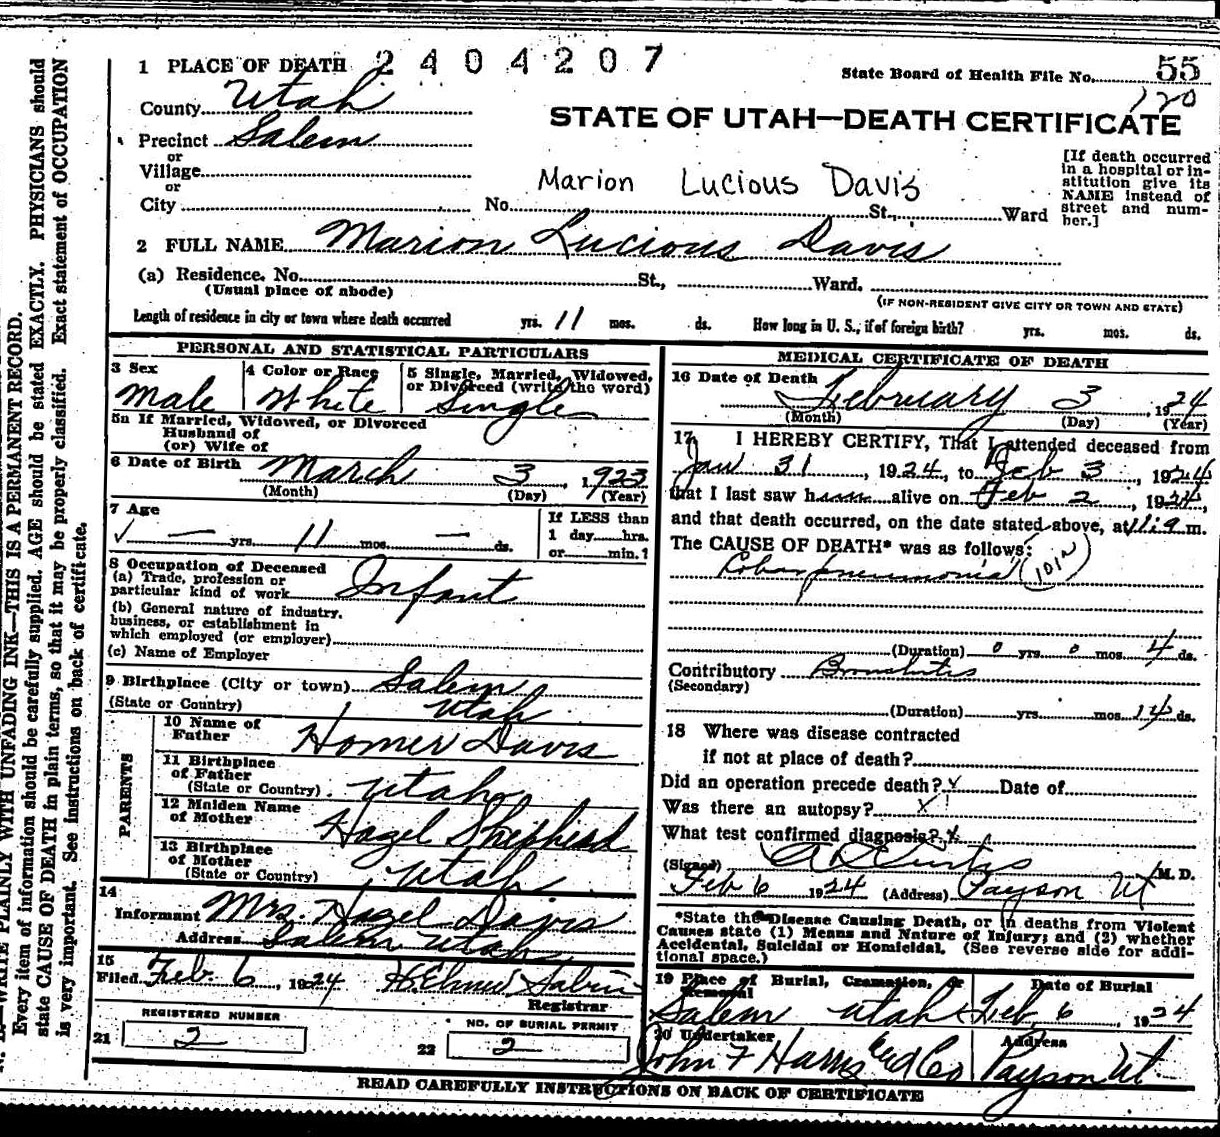 2404207
1 PLACE OF DEATH
State Board of Health File No. 55
120
County Utah
STATE OF UTAH—DEATH CERTIFICATE
Precinct Salem
or
Village
or
City No. St., Ward
Marion Lucious Davis
[If death occurred
in a hospital or in-
stitution give its
NAME instead of
street and num-
ber.]
2 FULL NAME Marion Lucious Davis
(a) Residence. No. St., Ward.
(Usual place of abode)
(IF NON-RESIDENT GIVE CITY OR TOWN AND STATE)
Length of residence in city or town where death occurred yrs. 11 mos. ds. How long in U. S., if of foreign birth? yrs. mos. ds.
PERSONAL AND STATISTICAL PARTICULARS
3 Sex
Male
4 Color or Race
White
5 Single, Married, Widowed,
or Divorced (write the word)
Single
5a If Married, Widowed, or Divorced
Husband of
(or) Wife of
6 Date of Birth March 3, 1923
(Month) (Day) (Year)
7 Age
— yrs. 11 mos. — ds.
If LESS than
1 day hrs.
or min.?
8 Occupation of Deceased
(a) Trade, profession or
particular kind of work Infant
(b) General nature of industry,
business, or establishment in
which employed (or employer)
(c) Name of Employer
9 Birthplace (City or town) Salem
(State or Country) Utah
PARENTS
10 Name of
Father Homer Davis
11 Birthplace
of Father
(State or Country) Utah
12 Maiden Name
of Mother Hazel Shepherd
13 Birthplace
of Mother
(State or Country) Utah
14
Informant Mrs. Hazel Davis
Address Salem Utah
15
Filed Feb. 6, 1924
Registrar
REGISTERED NUMBER
21 2
NO. OF BURIAL PERMIT
22 2
MEDICAL CERTIFICATE OF DEATH
16 Date of Death
February 3, 1924
(Month) (Day) (Year)
17 I HEREBY CERTIFY, That I attended deceased from
Jan 31, 1924, to Feb 3, 1924
that I last saw him alive on Feb 2, 1924,
and that death occurred, on the date stated above, at m.
The CAUSE OF DEATH* was as follows:
Lobar pneumonia 101N
(Duration) 0 yrs. 0 mos. 4 ds.
Contributory Bronchitis
(Secondary)
(Duration) yrs. mos. 14 ds.
18 Where was disease contracted
if not at place of death?
Did an operation precede death? x Date of
Was there an autopsy? x
What test confirmed diagnosis? x
(Signed) A D Curtis M. D.
Feb 6 1924 (Address) Payson Ut
*State the Disease Causing Death, or in deaths from Violent
Causes state (1) Means and Nature of Injury; and (2) whether
Accidental, Suicidal or Homicidal. (See reverse side for addi-
tional space.)
19 Place of Burial, Cremation, or
Removal
Salem Utah
Date of Burial
Feb 6, 1924
20 Undertaker
John F Harris Co
Address
Payson Ut
READ CAREFULLY INSTRUCTIONS ON BACK OF CERTIFICATE
WRITE PLAINLY WITH UNFADING INK—THIS IS A PERMANENT RECORD.
Every item of information should be carefully supplied. AGE should be stated EXACTLY. PHYSICIANS should
state CAUSE OF DEATH in plain terms, so that it may be properly classified. Exact statement of OCCUPATION
is very important. See instructions on back of certificate.